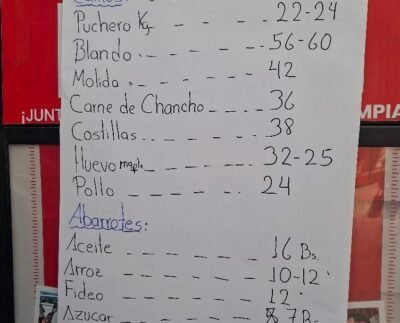 Carnes:
Puchero Kg _ _ _ _ 22-24
Blando. - _ _ _ _ 56-60
Molida. _ _ _ _ _ 42
Carne de Chancho _ _ _ _ 36
Costillas.. _ _ _ _ _ 38
Huevo maple _ _ _ _ 32-25
Pollo _ _ _ _ _ 24
Abarrotes:
Aceite _ _ _ _ _ 16 Bs.
Arroz _ _ _ _ _ 10-12
Fideo _ _ _ _ _ 12
Azucar _ _ _ _ _ 7 Bs
¡JUNT
MPIA